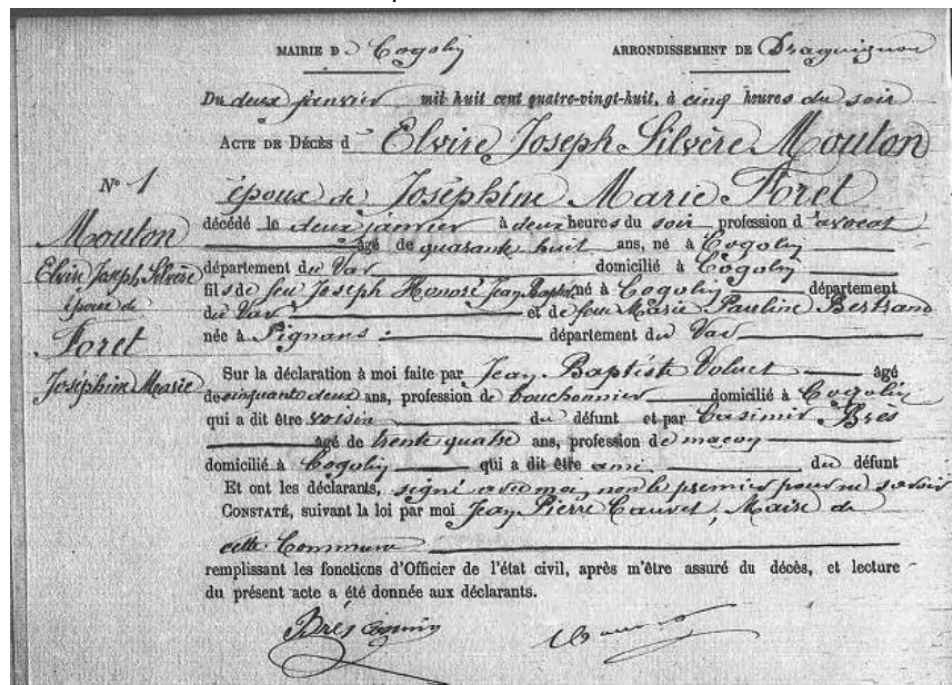 MAIRIE D Cogolin ARRONDISSEMENT DE Draguignan
Du deux janvier mil huit cent quatre-vingt-huit, à cinq heures du soir
ACTE DE DÉCÈS d' Elvire Joseph Silvère Mouton
N° 1
époux de Joséphine Marie Foret
Mouton
décédé le deux janvier à deux heures du soir profession d'avocat
âgé de quarante huit ans, né à Cogolin
Elvire Joseph Silvère
département du Var domicilié à Cogolin
époux de
fils de feu Joseph Honoré Jean Baptiste né à Cogolin département
du Var et de feue Marie Pauline Bertrand
Foret
née à Pignans département du Var
Joséphine Marie
Sur la déclaration à moi faite par Jean Baptiste âgé
de cinquante deux ans, profession de bouchonnier domicilié à Cogolin
qui a dit être voisin du défunt et par Casimir Brés
âgé de trente quatre ans, profession de maçon
domicilié à Cogolin qui a dit être ami du défunt
Et ont les déclarants, signé avec moi, non le premier pour ne savoir
CONSTATÉ, suivant la loi par moi Jean Pierre Cauvet, Maire de
cette Commune
remplissant les fonctions d'Officier de l'état civil, après m'être assuré du décès, et lecture
du présent acte a été donnée aux déclarants.
Brés Casimir